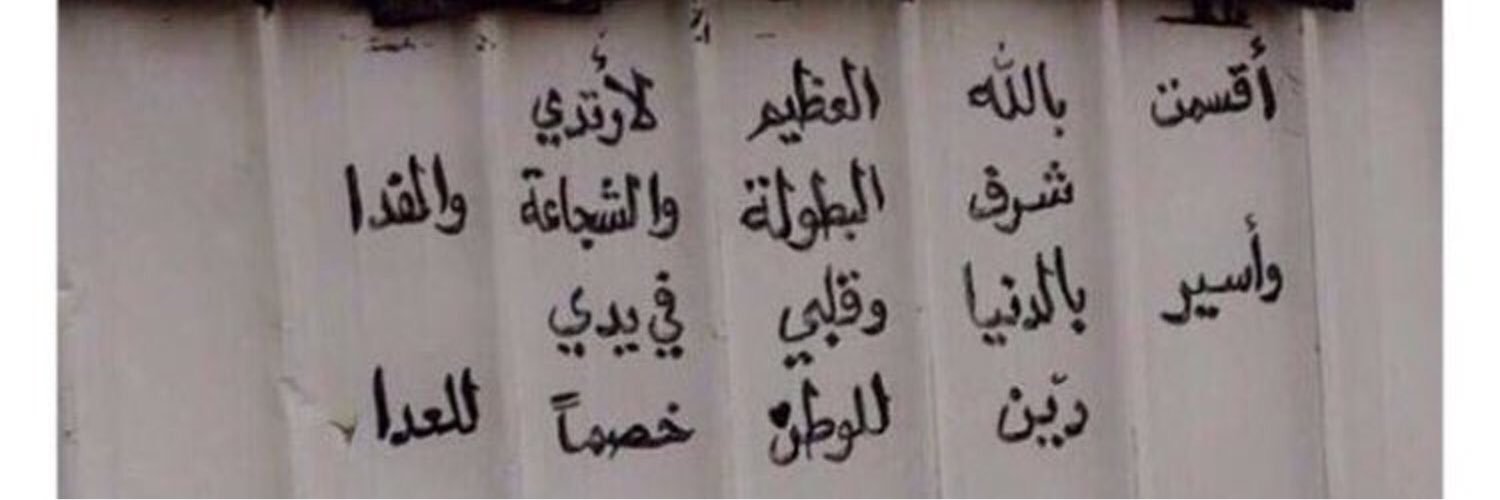 أقسمت بالله العظيم لأرتدي
شرف البطولة والشجاعة والفدا
وأسير بالدنيا وقلبي في يدي
ديّن للوطن خصماً للعدا